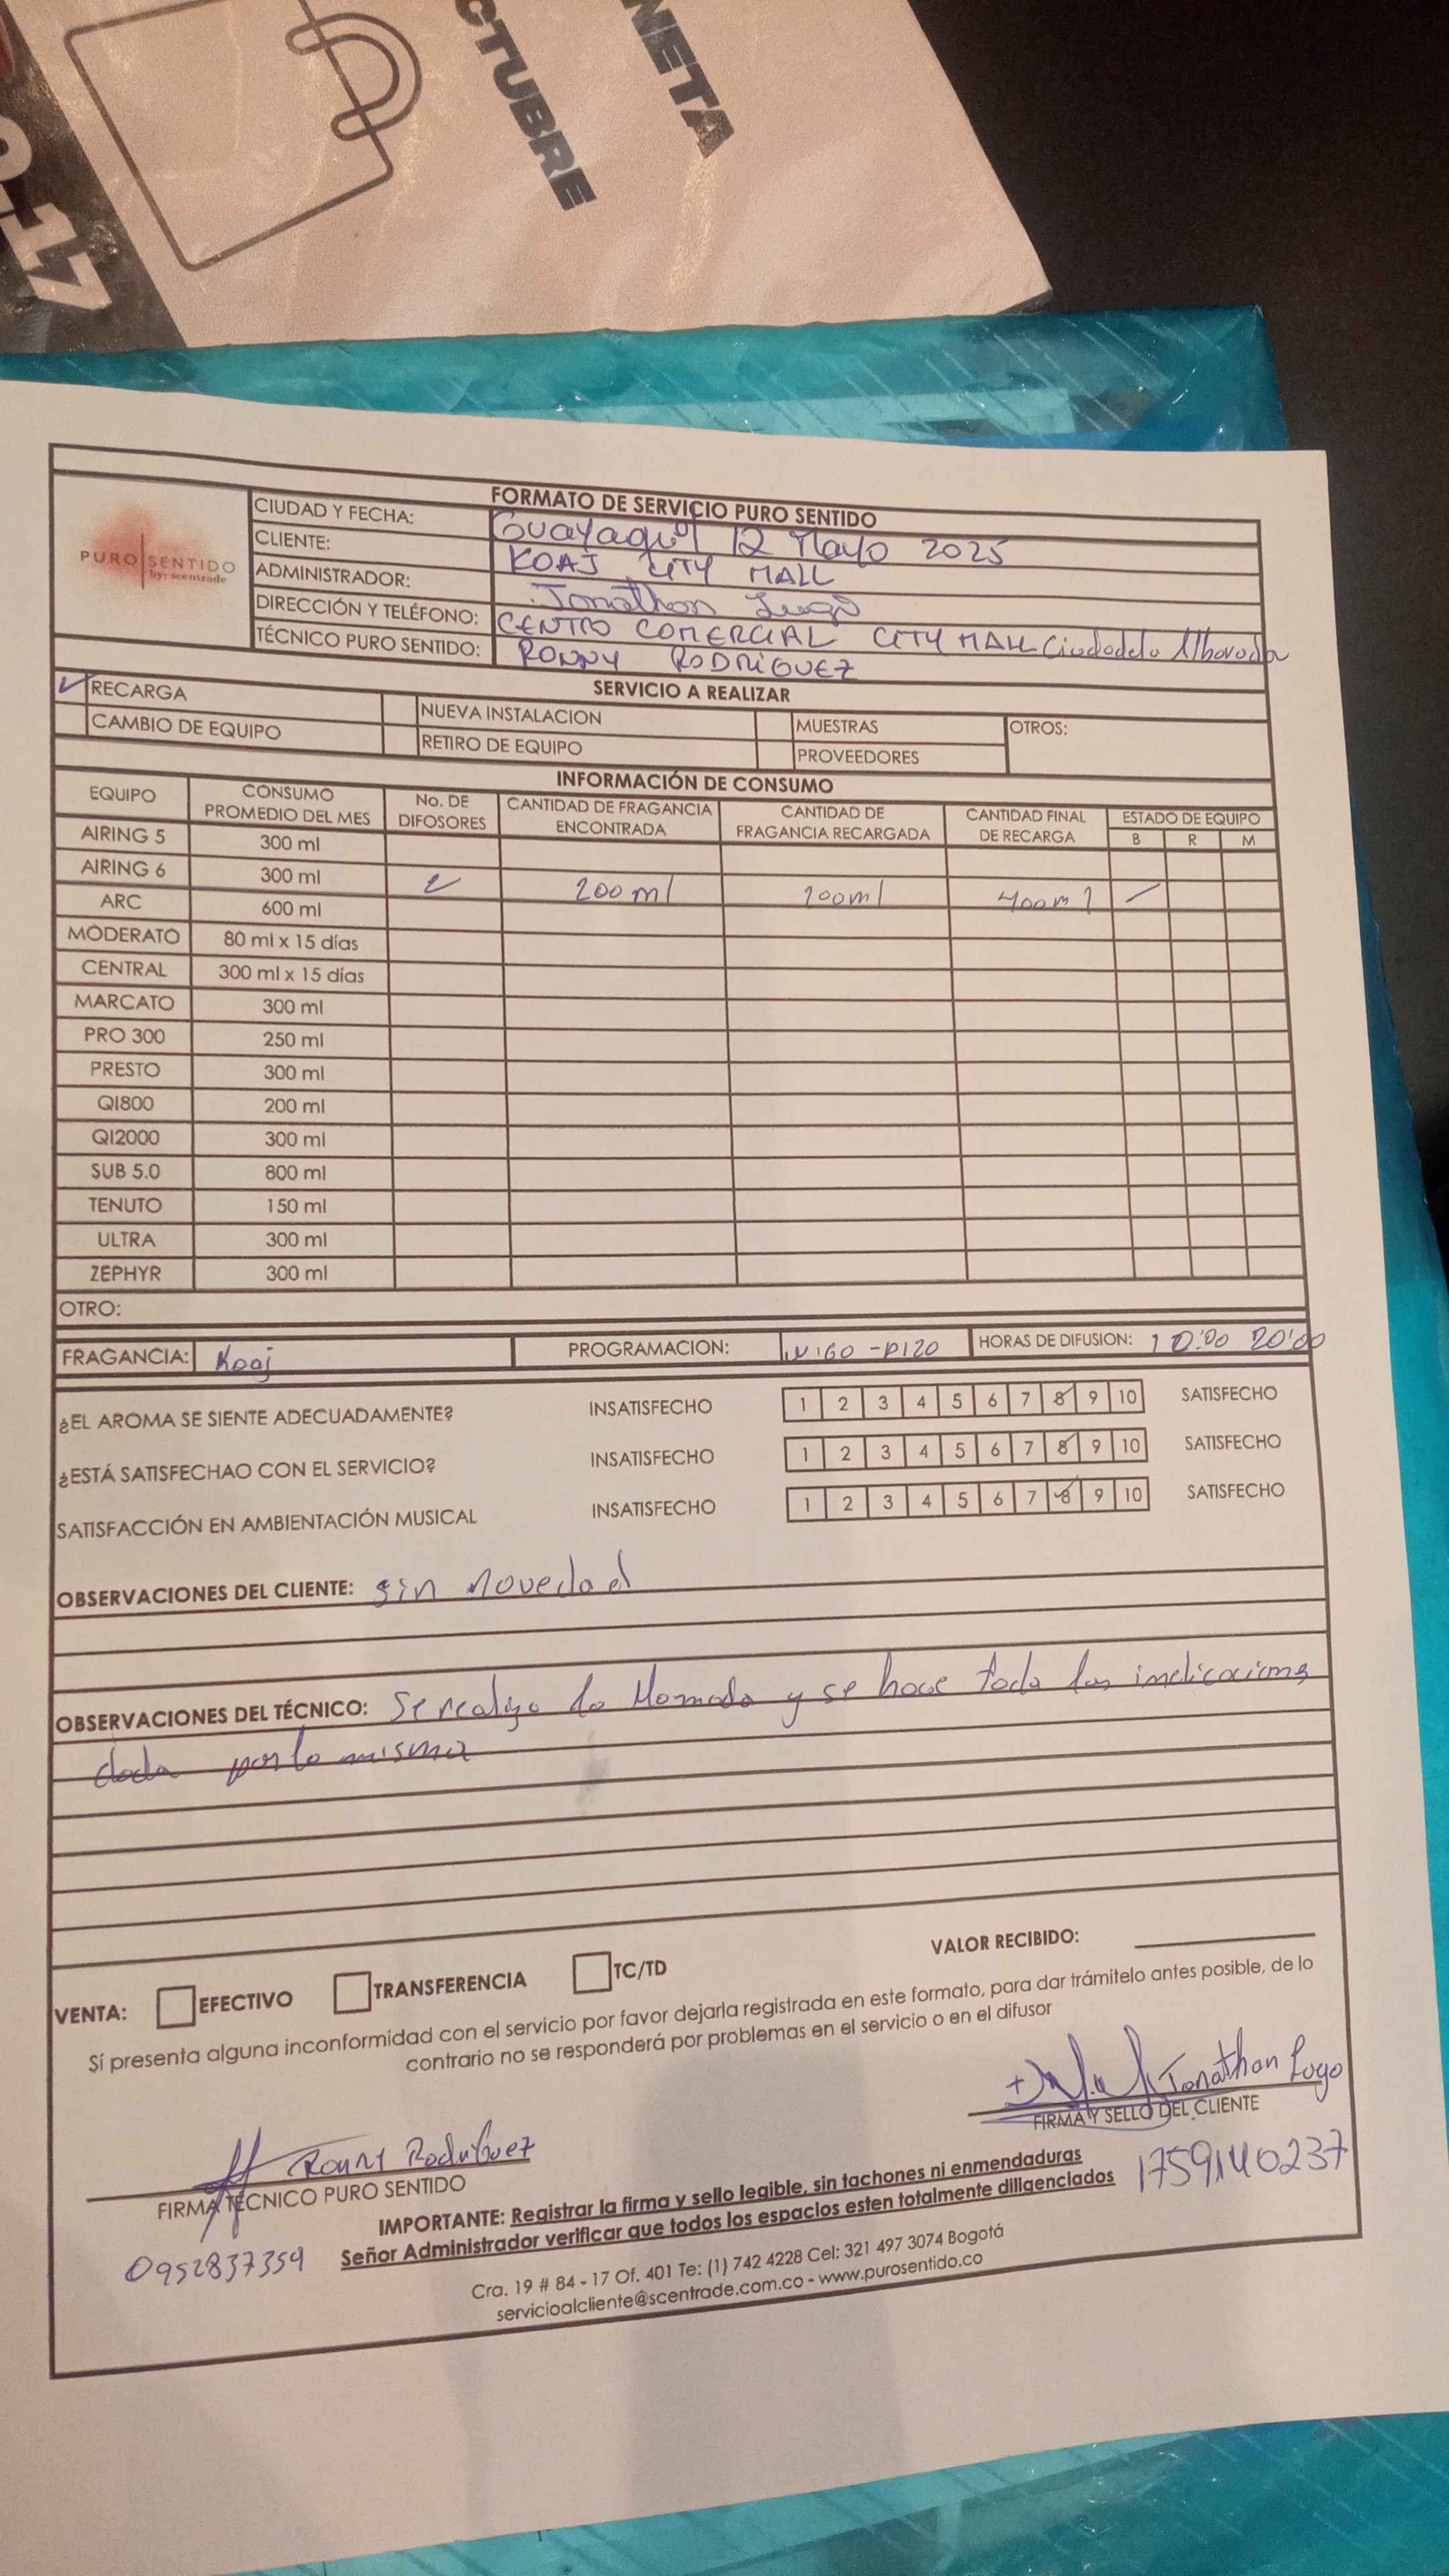 NETA
CTUBRE
017
FORMATO DE SERVICIO PURO SENTIDO
PURO SENTIDO
by: scentrade
CIUDAD Y FECHA: Guayaquil 12 Mayo 2025
CLIENTE: KOAJ CITY MALL
ADMINISTRADOR: Jonathan Lugo
DIRECCIÓN Y TELÉFONO: CENTRO COMERCIAL CITY MALL Ciudadela Alborada
TÉCNICO PURO SENTIDO: RONNY RODRIGUEZ
SERVICIO A REALIZAR
✓ RECARGA NUEVA INSTALACION MUESTRAS OTROS:
CAMBIO DE EQUIPO RETIRO DE EQUIPO PROVEEDORES
INFORMACIÓN DE CONSUMO
EQUIPO CONSUMO PROMEDIO DEL MES No. DE DIFOSORES CANTIDAD DE FRAGANCIA ENCONTRADA CANTIDAD DE FRAGANCIA RECARGADA CANTIDAD FINAL DE RECARGA ESTADO DE EQUIPO
B R M
AIRING 5 300 ml
AIRING 6 300 ml 200 ml 200ml 400ml
ARC 600 ml
MODERATO 80 ml x 15 días
CENTRAL 300 ml x 15 días
MARCATO 300 ml
PRO 300 250 ml
PRESTO 300 ml
QI800 200 ml
QI2000 300 ml
SUB 5.0 800 ml
TENUTO 150 ml
ULTRA 300 ml
ZEPHYR 300 ml
OTRO:
FRAGANCIA: Koaj PROGRAMACION: W:60 - P120 HORAS DE DIFUSION: 10:00 20:00
¿EL AROMA SE SIENTE ADECUADAMENTE? INSATISFECHO 1 2 3 4 5 6 7 8 9 10 SATISFECHO
¿ESTÁ SATISFECHAO CON EL SERVICIO? INSATISFECHO 1 2 3 4 5 6 7 8 9 10 SATISFECHO
SATISFACCIÓN EN AMBIENTACIÓN MUSICAL INSATISFECHO 1 2 3 4 5 6 7 8 9 10 SATISFECHO
OBSERVACIONES DEL CLIENTE: sin novedad
OBSERVACIONES DEL TÉCNICO: Se realizo la llamada y se hace toda las indicaciones
dada por la misma
VALOR RECIBIDO:
VENTA: EFECTIVO TRANSFERENCIA TC/TD
Sí presenta alguna inconformidad con el servicio por favor dejarla registrada en este formato, para dar trámitelo antes posible, de lo
contrario no se responderá por problemas en el servicio o en el difusor
Jonathan Lugo
FIRMA Y SELLO DEL CLIENTE
1759140237
Ronny Rodriguez
FIRMA TÉCNICO PURO SENTIDO
0952837359
IMPORTANTE: Registrar la firma y sello legible, sin tachones ni enmendaduras
Señor Administrador verificar que todos los espacios esten totalmente diligenciados
Cra. 19 # 84 - 17 Of. 401 Te: (1) 742 4228 Cel: 321 497 3074 Bogotá
servicioalcliente@scentrade.com.co - www.purosentido.co